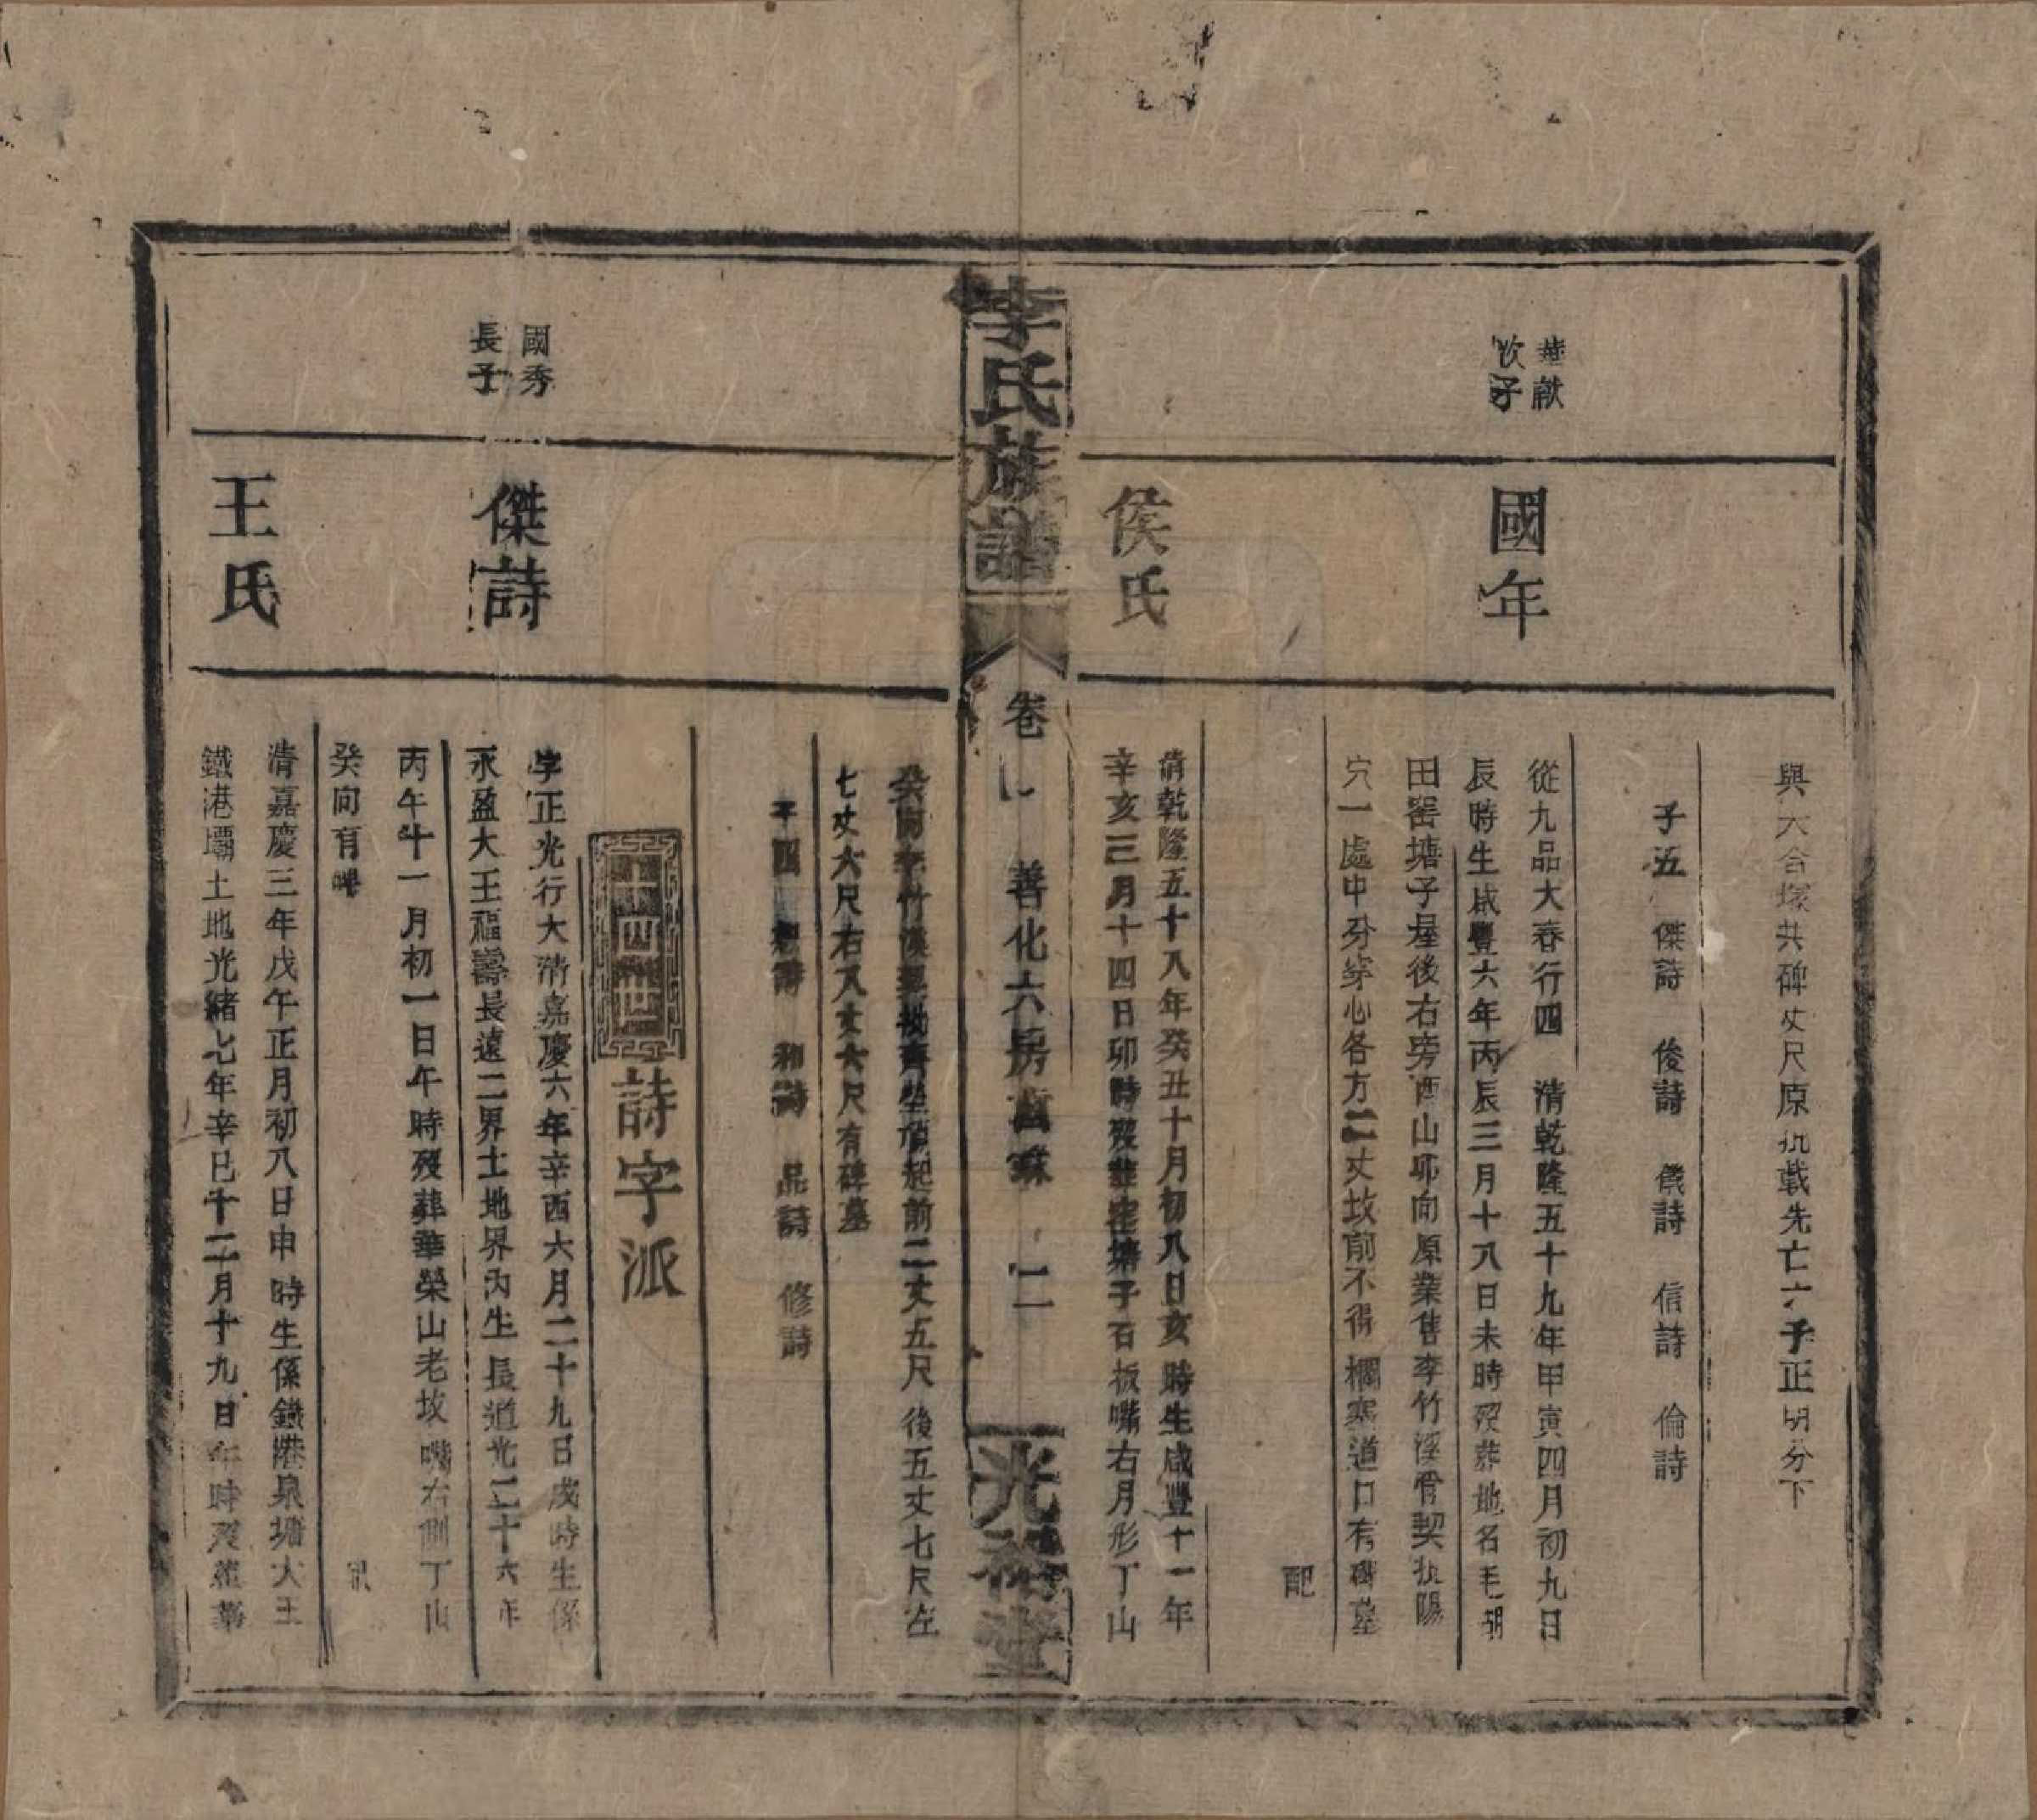 與大合塚共碑丈尺原執載先亡六子正明分下
子五 傑詩 俊詩 儀詩 信詩 倫詩
華献
次子
國年
從九品大春行四 清乾隆五十九年甲寅四月初九日
辰時生咸豐六年丙辰三月十八日未時歿葬地名毛胡
田窑塘子屋後右旁酉山卯向原業售李竹溪骨契執陽
穴一處中分穿心各方二丈坟前不得欄塞道口有碑墓
配
侯氏
清乾隆五十八年癸丑十月初八日亥時生咸豐十一年
辛亥三月十四日卯時歿葬窑塘子石板嘴右月形丁山
李氏族譜
卷 善化六房 二
光裕堂
癸向李竹溪契起前二丈五尺後五丈七尺左
七丈六尺右八丈六尺有碑墓
子四 詩 和詩 品詩 修詩
十四世
詩字派
國秀
長子
傑詩
字正光行大清嘉慶六年辛酉六月二十九日戌時生係
永盈大王福壽長遠二界土地界內生長道光二十六年
丙午十一月初一日午時歿葬華榮山老坟嘴右側丁山
癸向有碑
配
王氏
清嘉慶三年戊午正月初八日申時生係鐵港泉塘大王
鐵港壩土地光緒七年辛巳十二月十九日午時歿葬華